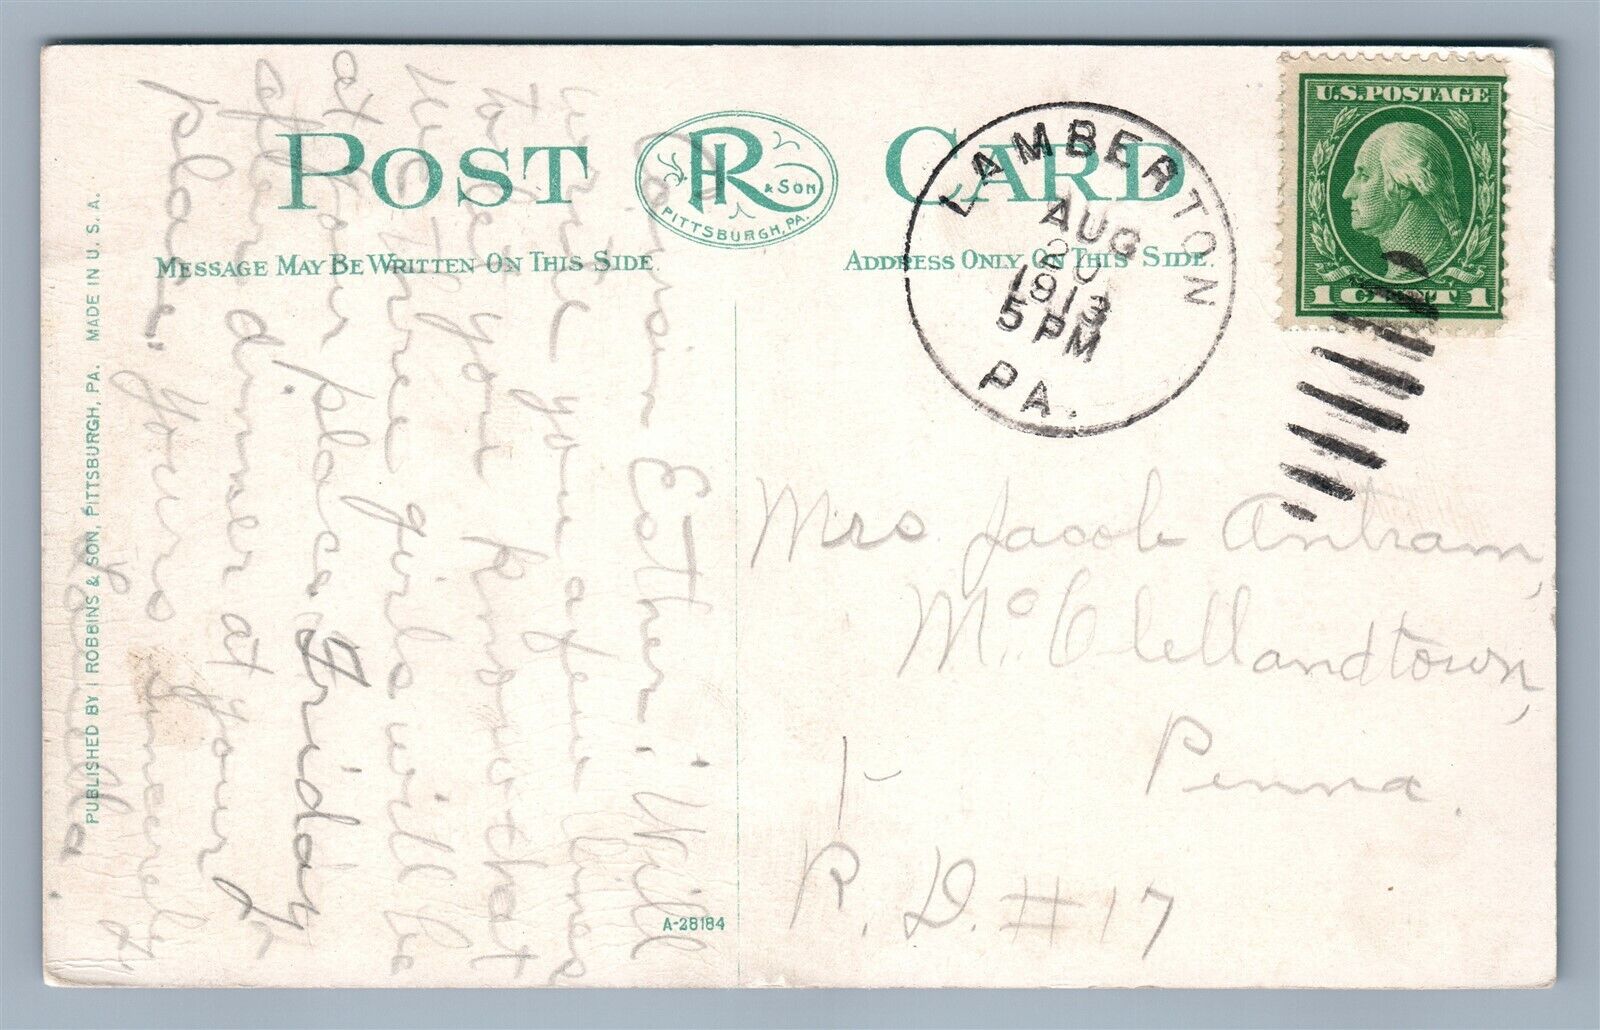 POST CARD
IR & SON
PITTSBURGH, PA.
MESSAGE MAY BE WRITTEN ON THIS SIDE.
ADDRESS ONLY ON THIS SIDE.
LAMBERTON
AUG
20
1913
5 PM
PA.
U.S. POSTAGE
1 CENT 1
Cousin Esther; Will
write you a few lines
to let you know that
we three girls will be
at your place Friday
afternoon dinner at your
place, Yours sincerely
Mrs Jacob Antram,
McClellandtown,
Penna.
R. D. #17
A-28184
PUBLISHED BY I ROBBINS & SON, PITTSBURGH, PA. MADE IN U.S.A.